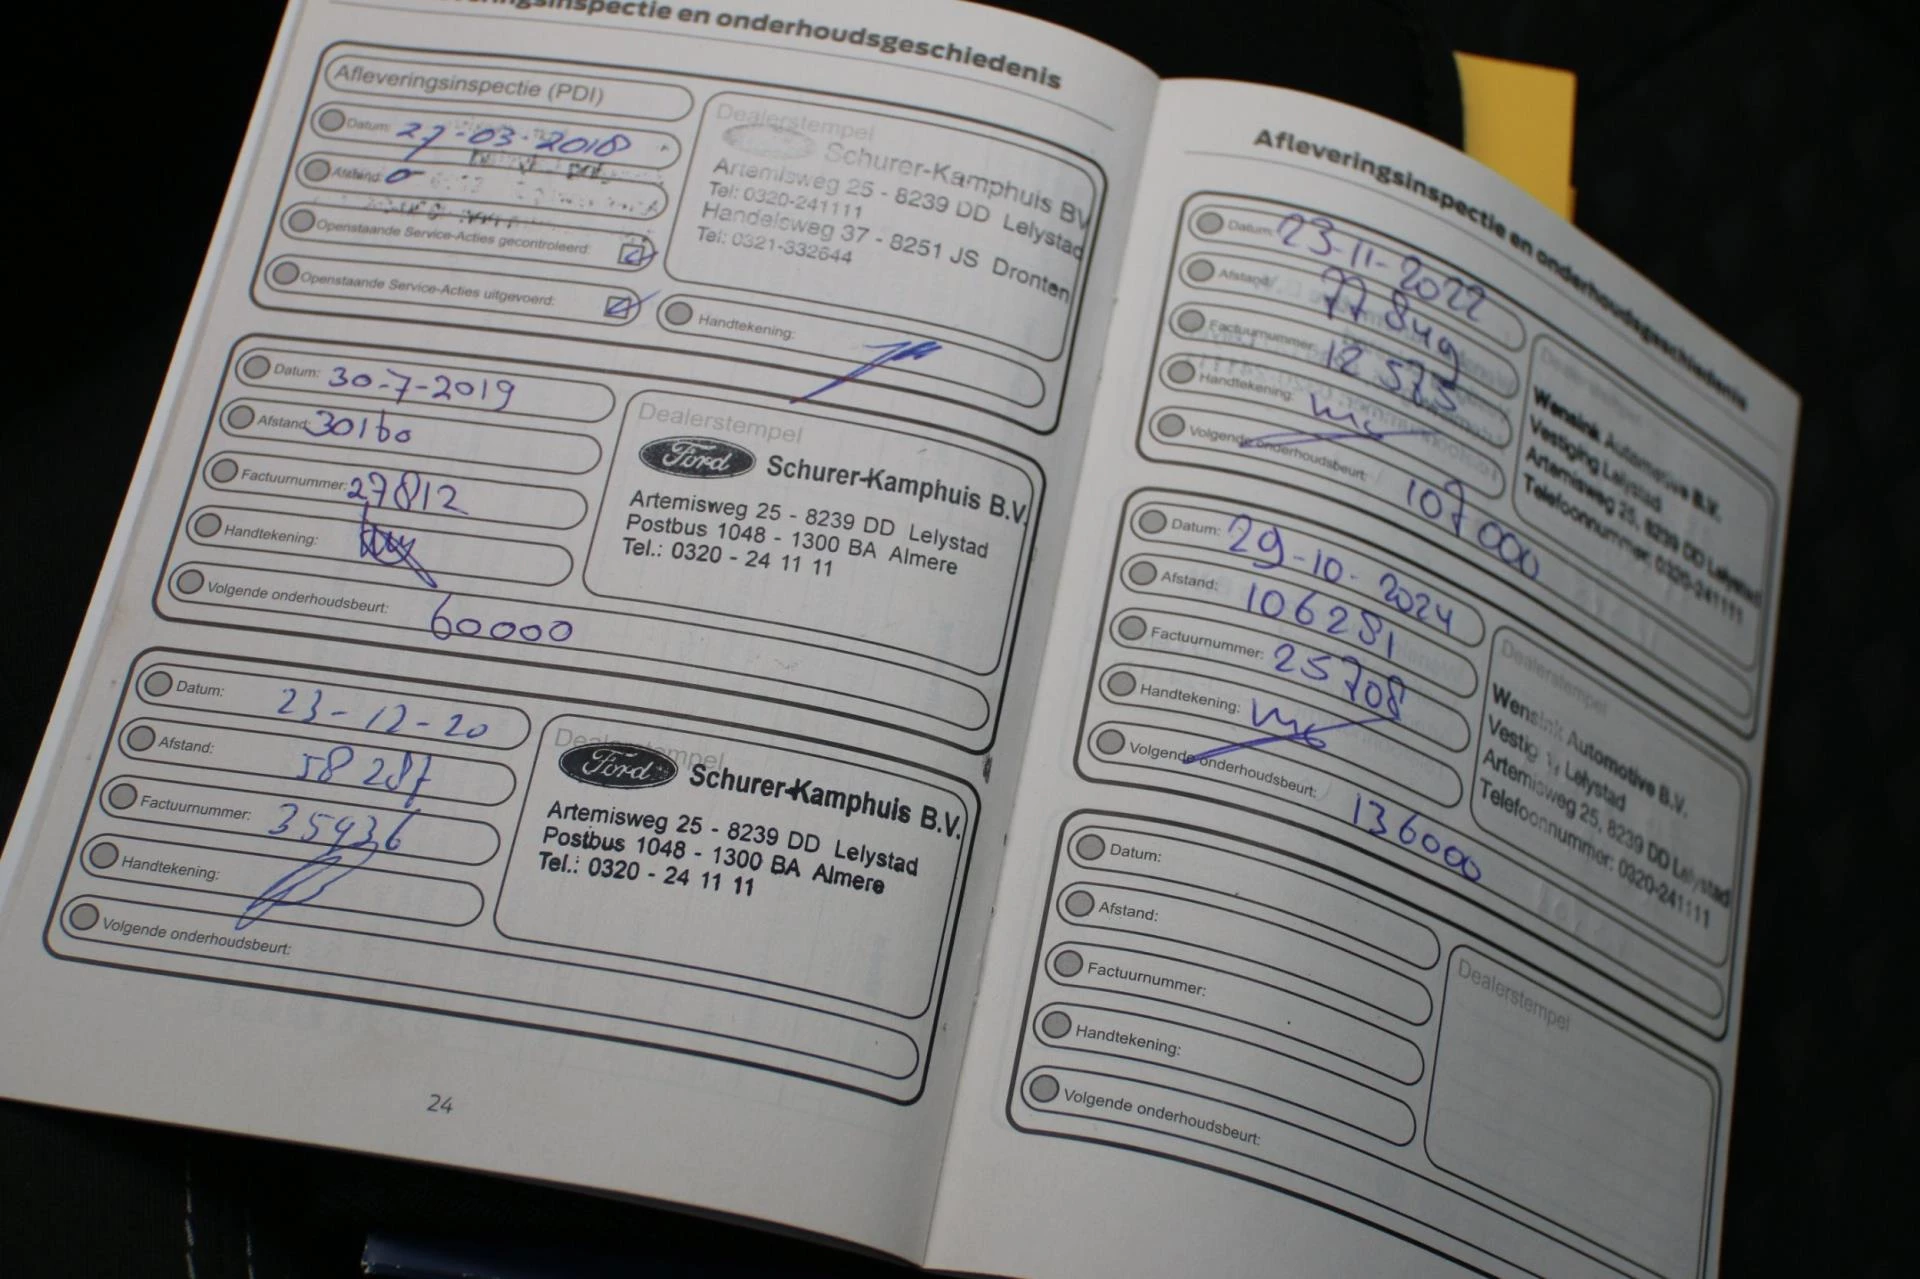 eringsinspectie en onderhoudsgeschiedenis
Afleveringsinspectie (PDI)
Datum: 27-03-2018
Afstand: 0
Openstaande Service-Acties gecontroleerd:
Openstaande Service-Acties uitgevoerd:
Dealerstempel
Schurer-Kamphuis BV
Artemisweg 25 - 8239 DD Lelystad
Tel: 0320-241111
Handelsweg 37 - 8251 JS Dronten
Tel: 0321-332644
Handtekening:
Datum: 30-7-2019
Afstand: 30160
Factuurnummer: 27812
Handtekening:
Volgende onderhoudsbeurt: 60000
Dealerstempel
Ford Schurer-Kamphuis B.V.
Artemisweg 25 - 8239 DD Lelystad
Postbus 1048 - 1300 BA Almere
Tel.: 0320 - 24 11 11
Datum: 23-12-20
Afstand: 58287
Factuurnummer: 35936
Handtekening:
Volgende onderhoudsbeurt:
Dealerstempel
Ford Schurer-Kamphuis B.V.
Artemisweg 25 - 8239 DD Lelystad
Postbus 1048 - 1300 BA Almere
Tel.: 0320 - 24 11 11
24
Afleveringsinspectie en onderhoudsgeschiedenis
Datum: 23-11-2022
Afstand: 77849
Factuurnummer: 12575
Handtekening:
Volgende onderhoudsbeurt: 107000
Wensink Automotive B.V.
Vestiging Lelystad
Artemisweg 25, 8239 DD Lelystad
Telefoonnummer: 0320-241111
Datum: 29-10-2024
Afstand: 106281
Factuurnummer: 25708
Handtekening:
Volgende onderhoudsbeurt: 136000
Dealerstempel
Wensink Automotive B.V.
Vestig Lelystad
Artemisweg 25, 8239 DD Lelystad
Telefoonnummer: 0320-241111
Datum:
Afstand:
Factuurnummer:
Handtekening:
Volgende onderhoudsbeurt:
Dealerstempel